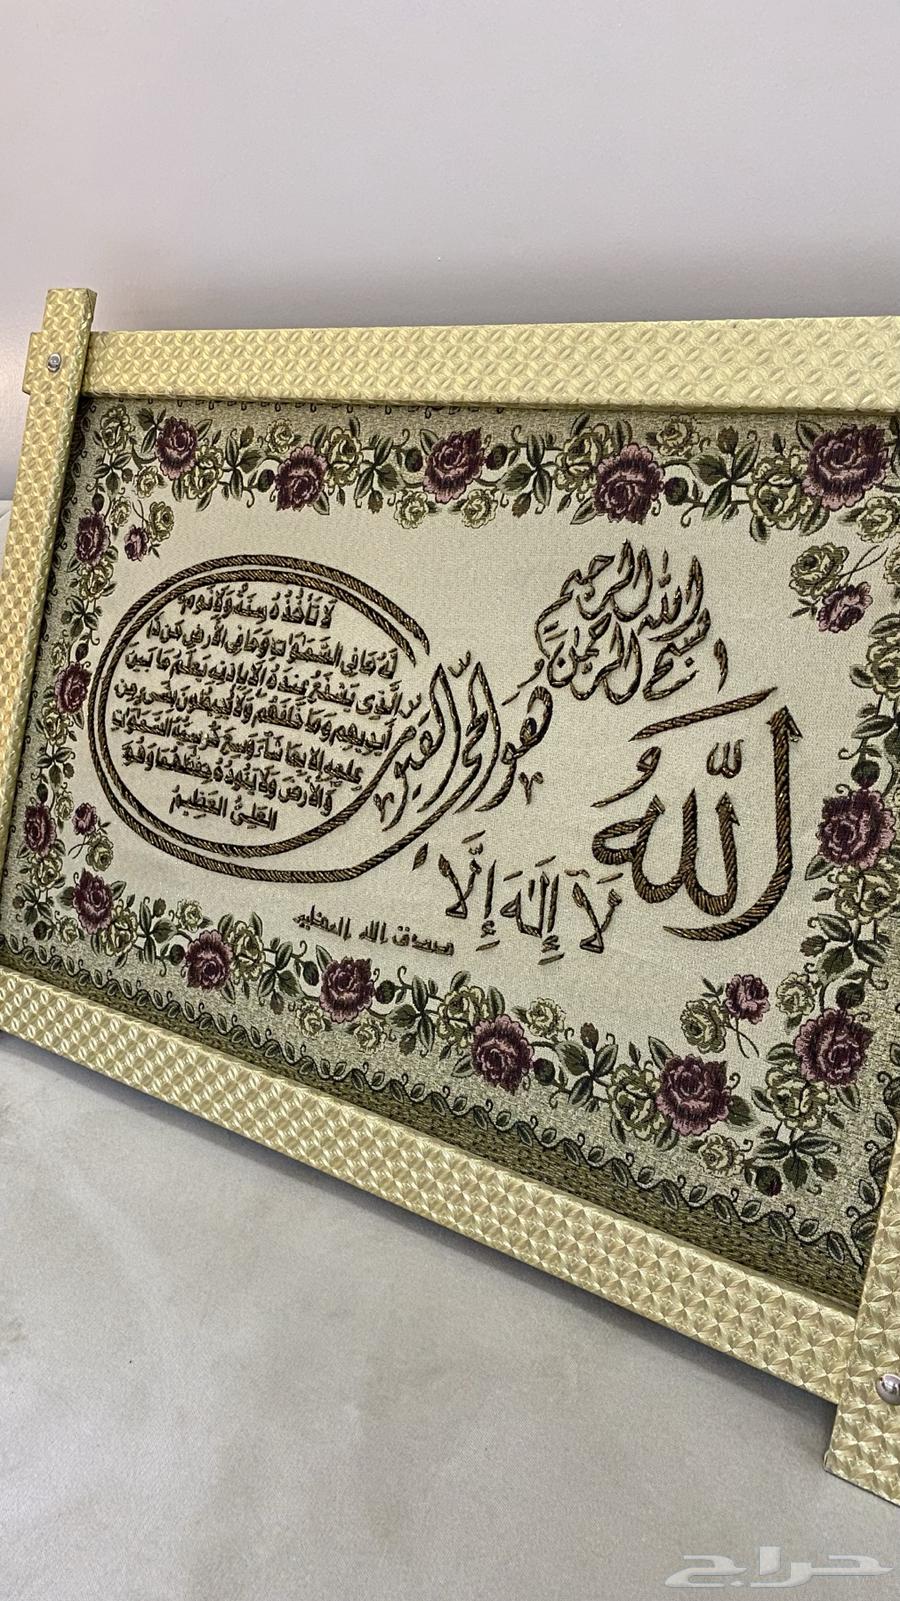 بسم الله الرحمن الرحيم
الله
لَا إِلَٰهَ إِلَّا
هو الحي القيوم
لَا تَأْخُذُهُ سِنَةٌ وَلَا نَوْمٌ
لَهُ مَا فِي السَّمَٰوَاتِ وَمَا فِي الْأَرْضِ مَن ذَا
الَّذِي يَشْفَعُ عِندَهُ إِلَّا بِإِذْنِهِ يَعْلَمُ مَا بَيْنَ
أَيْدِيهِمْ وَمَا خَلْفَهُمْ وَلَا يُحِيطُونَ بِشَيْءٍ مِن
عِلْمِهِ إِلَّا بِمَا شَاءَ وَسِعَ كُرْسِيُّهُ السَّمَٰوَاتِ
وَالْأَرْضَ وَلَا يَئُودُهُ حِفْظُهُمَا وَهُوَ
الْعَلِيُّ الْعَظِيمُ
صدق الله العظيم
حراج